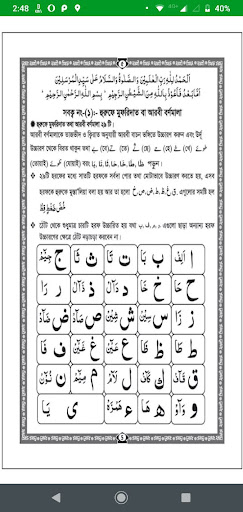 2:48
40%
اَلْحَمْدُ لِلّٰهِ رَبِّ الْعٰلَمِیْنَ وَالصَّلٰوةُ وَالسَّلَامُ عَلٰی سَیِّدِ الْمُرْسَلِیْنَ
اَمَّا بَعْدُ فَاَعُوْذُ بِاللّٰهِ مِنَ الشَّیْطٰنِ الرَّجِیْمِ بِسْمِ اللّٰهِ الرَّحْمٰنِ الرَّحِیْمِ
সবক্ব নং-(১):- হুরুফে মুফরিদাত বা আরবী বর্ণমালা
হুরুফে মুফরিদাত তথা আরবী বর্ণমালা ২৯ টি।
আরবী বর্ণমালাকে তাজভীদ ও ক্বিরাত অনুযায়ী আরবী বাচন ভঙ্গিতে উচ্চারণ করুন এবং উর্দূ
উচ্চারণ থেকে বিরত থাকুন
পড়ুন।
২৯টি হরফের মধ্যে সাতটি হরফকে সর্বদা পোর তথা মোটাভাবে উচ্চারণ করতে হয়, এসব
হরফকে হুরুফে মুস্তা'লিয়া বলা হয় আর তা হলো خ، ص، ض، ط، ظ، غ، ق এগুলোর সমষ্টি হল
ঠোঁট থেকে শুধুমাত্র চারটি হরফ উচ্চারিত হয় যথা ب، ف، م، و এগুলো ছাড়া অন্যান্য হরফ
উচ্চারণের ক্ষেত্রে ঠোঁট নড়াচড়া করবেন না।
ا اَلِفْ ب بَا ت تَا ث ثَا ج جِیْمْ
ح حَا خ خَا د دَالْ ذ ذَالْ ر رَا
ز زَا س سِیْنْ ش شِیْنْ ص صَادْ ض ضَادْ
ط طَا ظ ظَا ع عَیْنْ غ غَیْنْ ف فَا
ق قَافْ ك كَافْ ل لَامْ م مِیْمْ ن نُوْنْ
و وَاوْ ه هَا ء هَمْزَهْ ی یَا